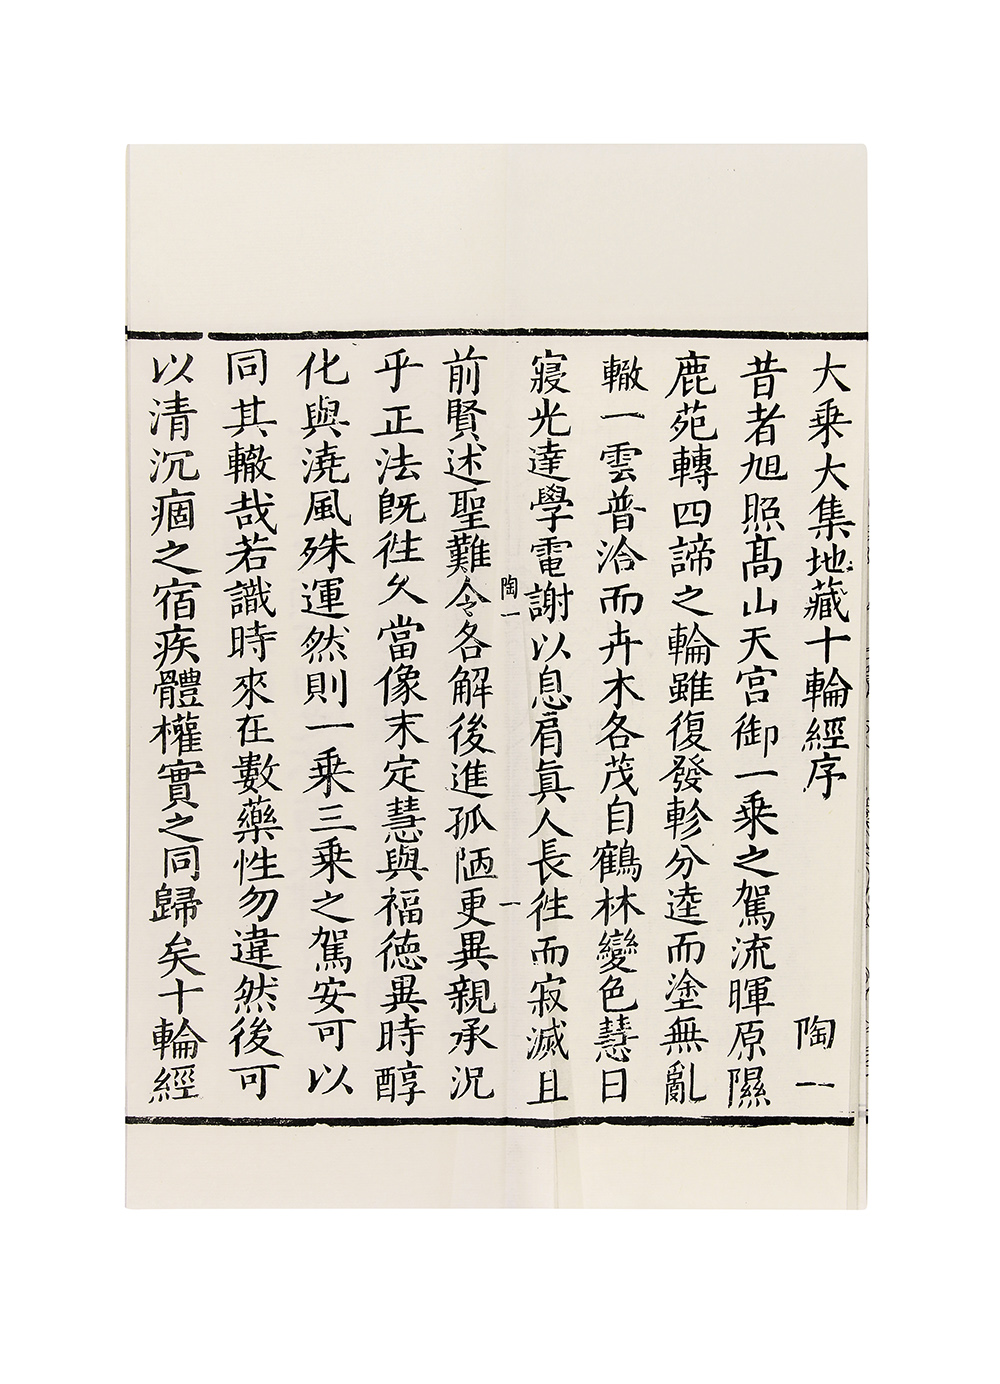 大乗大集地藏十輪經序 陶一
昔者旭照髙山天宮御一乗之駕流暉原隰
鹿苑轉四諦之輪雖復發軫分逵而塗無亂
轍一雲普洽而卉木各茂自鶴林變色慧日
寢光達學電謝以息肩真人長徃而寂滅且
陶一 一
前賢述聖難令各解後進孤陋更異親承況
乎正法旣徃久當像末定慧與福徳異時醇
化與澆風殊運然則一乗三乗之駕安可以
同其轍哉若識時來在數藥性勿違然後可
以清沉痼之宿疾體權實之同歸矣十輪經